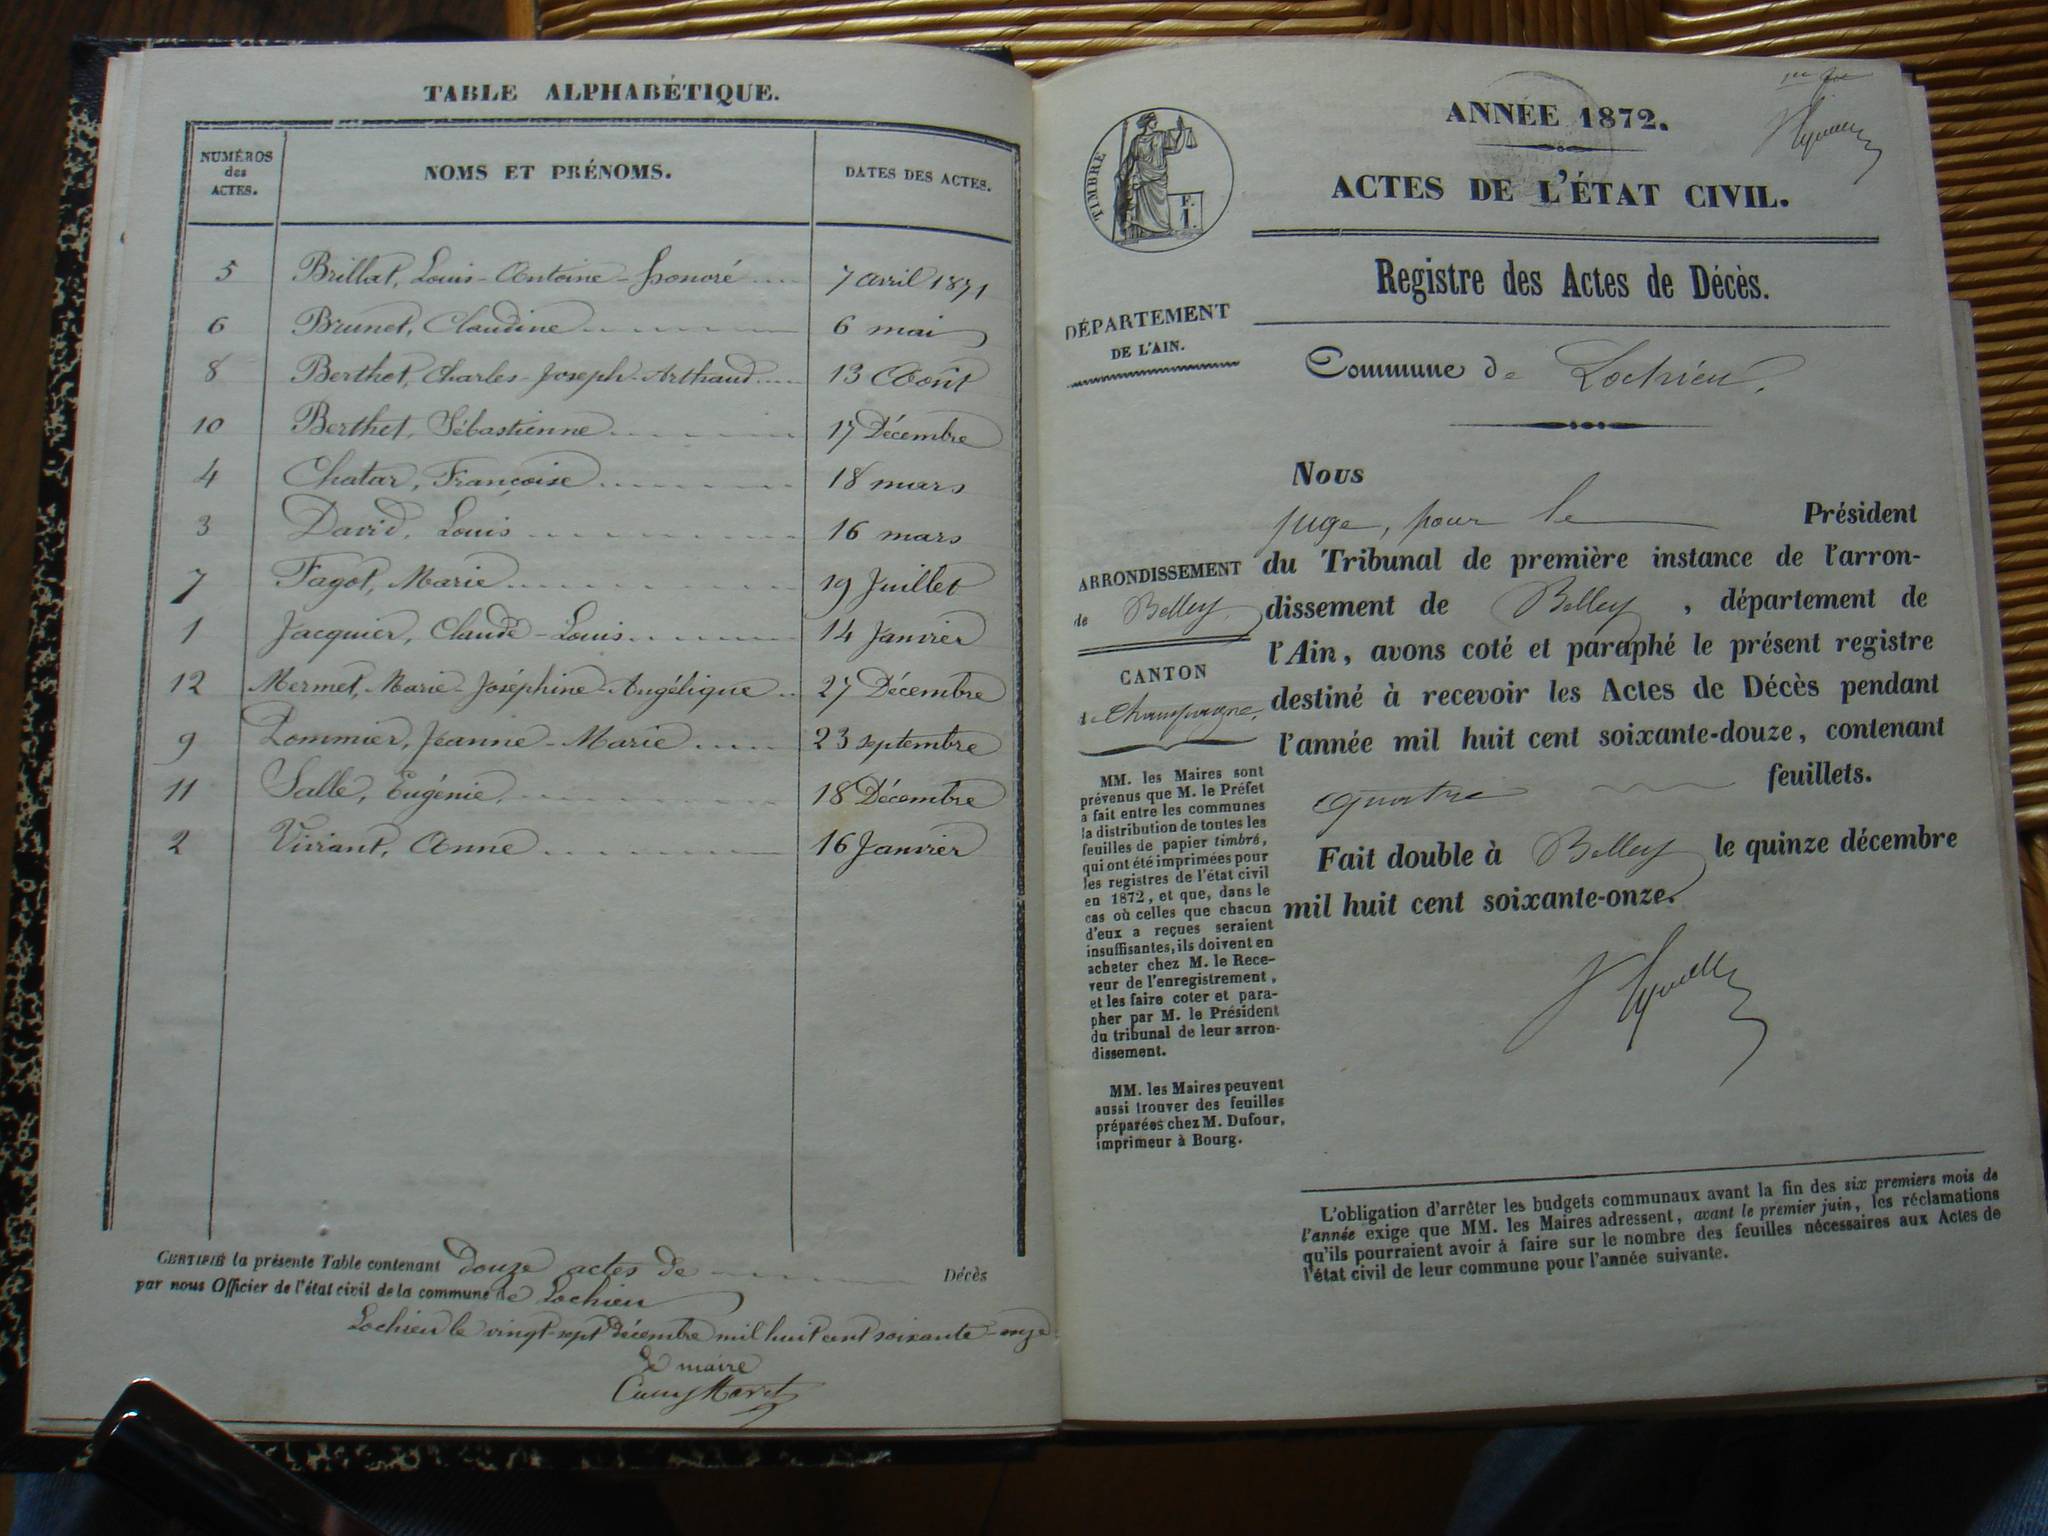 TABLE ALPHABÉTIQUE.
NUMÉROS des ACTES.
NOMS ET PRÉNOMS.
DATES DES ACTES.
5 Brillat, Louis-Antoine-Honoré 7 avril 1871
6 Brunet, Claudine 6 mai
8 Berthet, Charles-Joseph-Arthaud 13 Août
10 Berthet, Sébastienne 17 Décembre
4 Chatar, Françoise 18 mars
3 David, Louis 16 mars
7 Fagot, Marie 19 Juillet
1 Jacquier, Claude-Louis 14 Janvier
12 Mermet, Marie-Joséphine-Angélique 27 Décembre
9 Pommier, Jeanne-Marie 23 septembre
11 Salle, Eugénie 18 Décembre
2 Viviant, Anne 16 Janvier
CERTIFIÉ la présente Table contenant douze actes de Décès
par nous Officier de l'état civil de la commune de Lochieu
Lochieu le vingt-sept décembre mil huit cent soixante-onze
Le maire
ANNÉE 1872.
ACTES DE L'ÉTAT CIVIL.
TIMBRE
F. 1.
Registre des Actes de Décès.
DÉPARTEMENT
DE L'AIN.
Commune de Lochieu.
Nous
juge, pour le Président
du Tribunal de première instance de l'arron-
dissement de Belley, département de
l'Ain, avons coté et paraphé le présent registre
destiné à recevoir les Actes de Décès pendant
l'année mil huit cent soixante-douze, contenant
quatre feuillets.
Fait double à Belley le quinze décembre
mil huit cent soixante-onze.
ARRONDISSEMENT
de Belley
CANTON
de Champagne.
MM. les Maires sont
prévenus que M. le Préfet
a fait entre les communes
la distribution de toutes les
feuilles de papier timbré,
qui ont été imprimées pour
les registres de l'état civil
en 1872, et que, dans le
cas où celles que chacun
d'eux a reçues seraient
insuffisantes, ils doivent en
acheter chez M. le Rece-
veur de l'enregistrement,
et les faire coter et para-
pher par M. le Président
du tribunal de leur arron-
dissement.
MM. les Maires peuvent
aussi trouver des feuilles
préparées chez M. Dufour,
imprimeur à Bourg.
L'obligation d'arrêter les budgets communaux avant la fin des six premiers mois de
l'année exige que MM. les Maires adressent, avant le premier juin, les réclamations
qu'ils pourraient avoir à faire sur le nombre des feuilles nécessaires aux Actes de
l'état civil de leur commune pour l'année suivante.